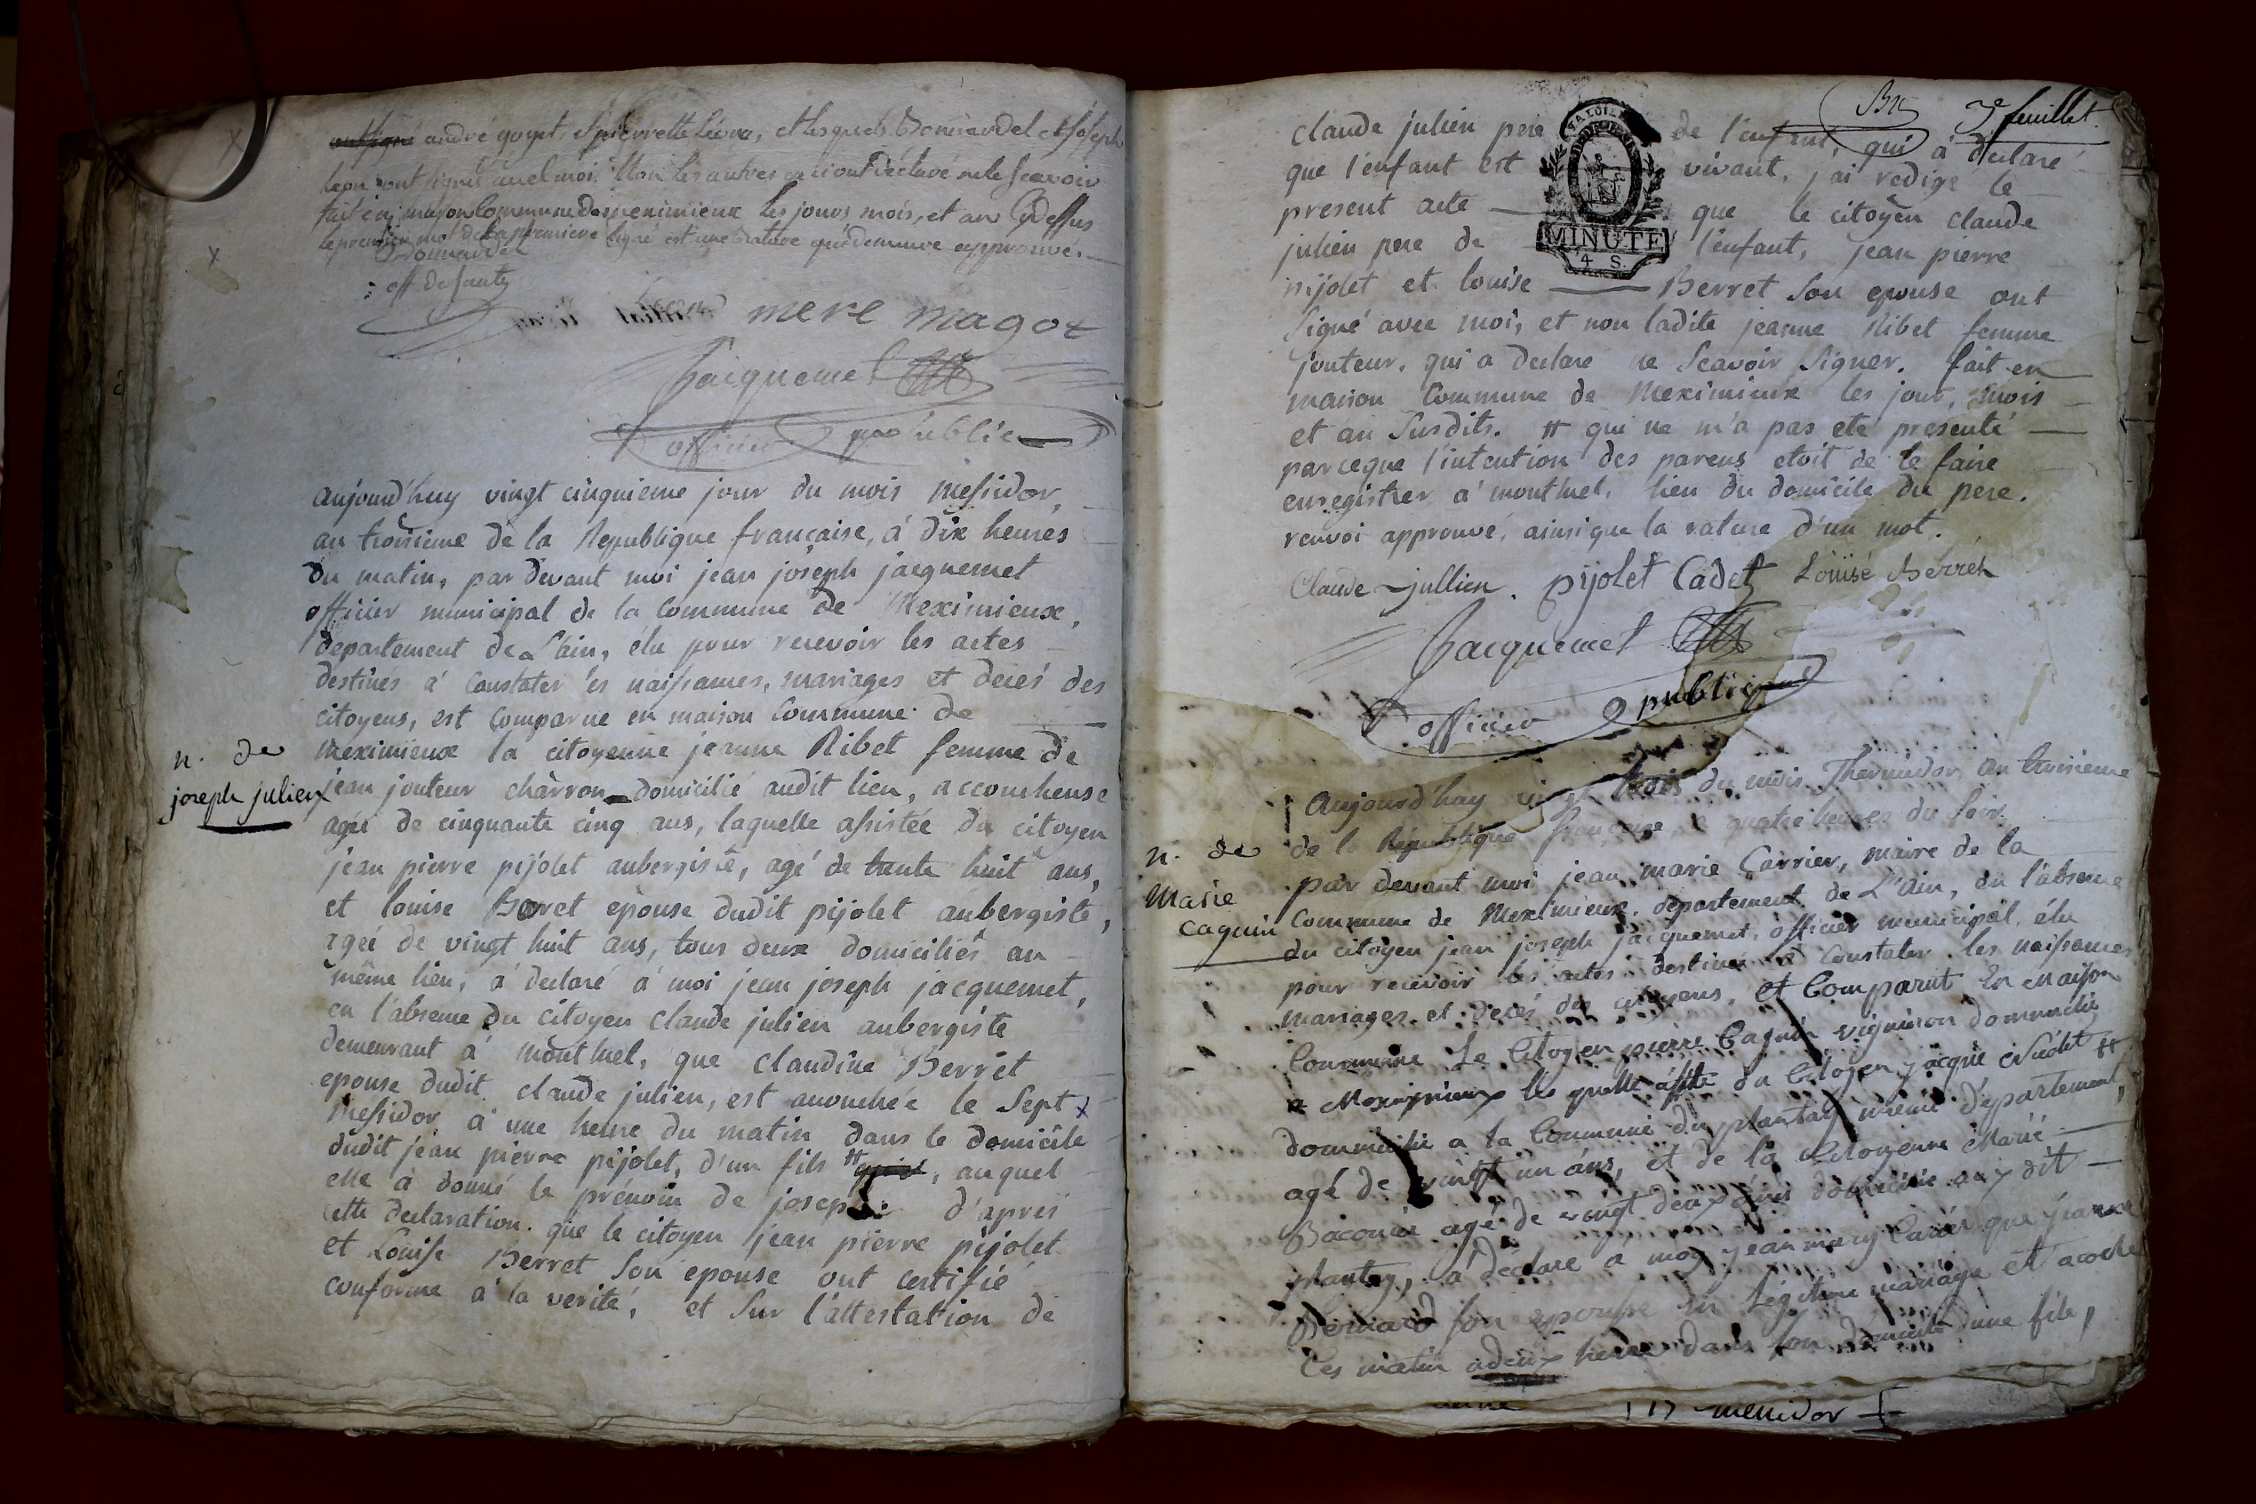 andré goyet, & pierrette et lesquels Bonnardel et joseph
ont signés avec moi, Non les autres qui ont declaré ne le scavoir
fait en maison Commune de meximieux les jours mois, et an Cydessus
le premier mot de la premiere ligne est une rature qui demeure approuvé.
Bonnardel
off de santé
mere magot
Jacquemet
officier public
aujourd'huy vingt cinquieme jour du mois messidor,
an troisieme de la Republique française, à dix heures
du matin, par devant moi jean joseph jacquemet
officier municipal de la Commune de Meximieux,
departement de L'ain, élu pour recevoir les actes
destinés à Constater les naissances, mariages et decés des
citoyens, est comparue en maison Commune de
Meximieux la citoyenne jeanne Ribet femme de
n. de
joseph julien
jean jouteur charron domicilié audit lieu, accoucheuse
agée de cinquante cinq ans, laquelle assistée du citoyen
jean pierre pijolet aubergiste, agé de trente huit ans,
et louise Berret epouse dudit pijolet aubergiste,
agée de vingt huit ans, tous deux domiciliés au
même lieu, à declaré à moi jean joseph jacquemet,
en l'absence du citoyen claude julien aubergiste
demeurant à montluel, que claudine Berret
epouse dudit claude julien, est accouchée le Sept
Messidor à une heure du matin dans le domicile
dudit jean pierre pijolet, d'un fils #, auquel
elle à donné le prénom de joseph. d'après
cette declaration. que le citoyen jean pierre pijolet
et Louise Berret son epouse ont certifié
conforme à la verité, et sur l'attestation de
3e feuillet.
claude julien pere de l'enfant, qui a declaré
que l'enfant est vivant, j'ai redigé le
present acte que le citoyen claude
julien pere de l'enfant, jean pierre
pijolet et louise Berret son epouse ont
signé avec moi, et non ladite jeanne Ribet femme
jouteur, qui a declaré ne scavoir signer. fait en
maison Commune de Meximieux les jour, mois
et an susdits. # qui ne m'a pas eté presenté
parceque l'intention des parens etoit de le faire
enregistrer à montluel, lieu du domicile du pere.
renvoi approuvé, ainsique la rature d'un mot.
MINUTE
4 S.
Claude jullien. pijolet Cadet Louisé Berret
Jacquemet
officier public
Aujourd'huy vingt trois du mois Thermidor, an troisieme
n. de
Marie
Caguin
de la République française à quatre heures du soir
par devant moi jean marie Carrier, maire de la
Commune de Meximieux, departement de L'Ain, en l'absence
du citoyen jean joseph jacquemet, officier municipal, élu
pour recevoir les actes destinés à Constater les naissances
mariages et decés des citoyens, et Comparut En maison
Commune Le Citoyen pierre Caguin vigneron dommicilie
a Meximieux les quelle assité du Citoyen jacque Nicolet #
dommicilié a la Commune du plantay meme département,
agé de vingt un ans, et de la Citoyenne Marie
agé de vingt deux ans domicilie aux dit
plantay, a déclaré à moy jean mary Carier que jeanne
Bernard son epouse en légitime mariage est acoche
Ces matin a deux heure dans son domicile d'une file,
messidor